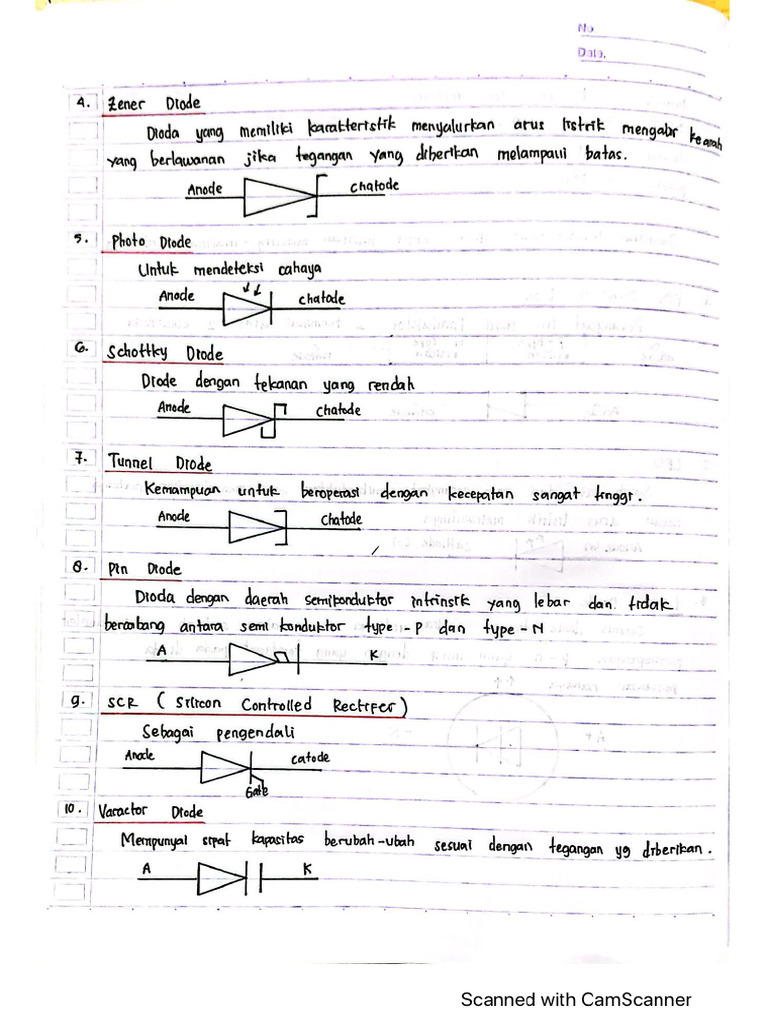 No
Date.
4. Zener Diode
Dioda yang memiliki karakteristik menyalurkan arus listrik mengalir kearah
yang berlawanan jika tegangan yang diberikan melampaui batas.
Anode chatode
5. Photo Diode
Untuk mendeteksi cahaya
Anode chatode
6. Schottky Diode
Diode dengan tekanan yang rendah
Anode chatode
7. Tunnel Diode
Kemampuan untuk beroperasi dengan kecepatan sangat tinggi.
Anode chatode
8. Pin Diode
Dioda dengan daerah semikonduktor intrinsik yang lebar dan tidak
beraabang antara semi konduktor type-P dan type-N
A K
9. SCR (Silicon Controlled Rectifer)
Sebagai pengendali
Anode catode
Gate
10. Varactor Diode
Mempunyai sipat kapasitas berubah-ubah sesuai dengan tegangan yg diberikan.
A K
Scanned with CamScanner